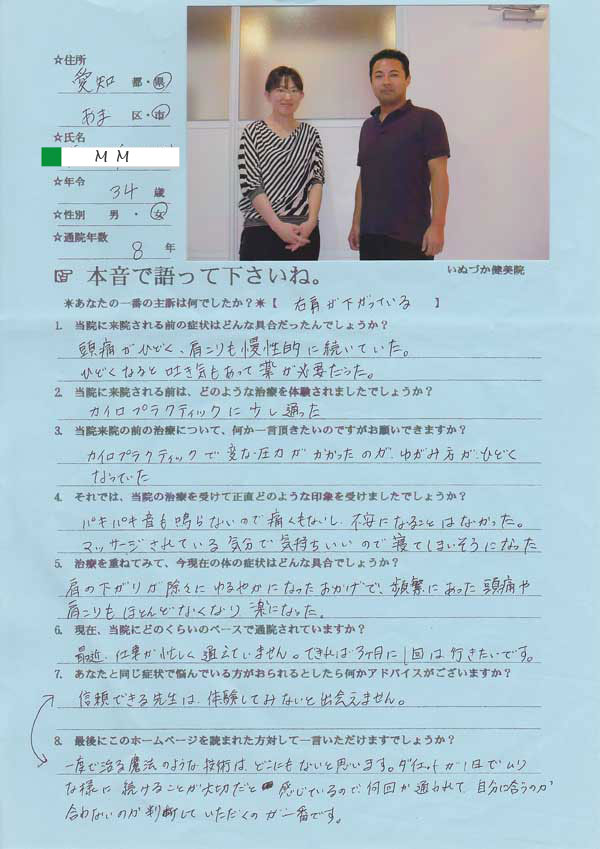 ☆住所
愛知 都・県
あま 区・市
☆氏名
M M
☆年令
34 歳
☆性別 男・女
☆通院年数
8 年
いぬづか健美院
本音で語って下さいね。
＊あなたの一番の主訴は何でしたか？＊【 右肩が下がっている 】
1. 当院に来院される前の症状はどんな具合だったんでしょうか？
頭痛がひどく、肩こりも慢性的に続いていた。
ひどくなると吐き気もあって薬が必要だった。
2. 当院に来院される前は、どのような治療を体験されましたでしょうか？
カイロプラクティックに少し通った
3. 当院来院の前の治療について、何か一言頂きたいのですがお願いできますか？
カイロプラクティックで変な圧力がかかったのか、ゆがみ方がひどく
なっていた
4. それでは、当院の治療を受けて正直どのような印象を受けましたでしょうか？
バキバキ音も鳴らないので痛くもないし、不安になることはなかった。
マッサージされている気分で気持ちいいので寝てしまいそうになった
5. 治療を重ねてみて、今現在の体の症状はどんな具合でしょうか？
肩の下がりが除々にゆるやかになったおかげで、頻繁にあった頭痛や
肩こりもほとんどなくなり楽になった。
6. 現在、当院にどのくらいのペースで通院されていますか？
最近、仕事が忙しく通えていません。できれば3ヶ月に1回は行きたいです。
7. あなたと同じ症状で悩んでいる方がおられるとしたら何かアドバイスがございますか？
信頼できる先生は、体験してみないと出会えません。
8. 最後にこのホームページを読まれた方対して一言いただけますでしょうか？
一度で治る魔法のような技術は、どこにもないと思います。ダイエットが1日でムリ
な様に続けることが大切だと感じているので何回か通われて、自分に合うのか
合わないのか判断していただくのが一番です。